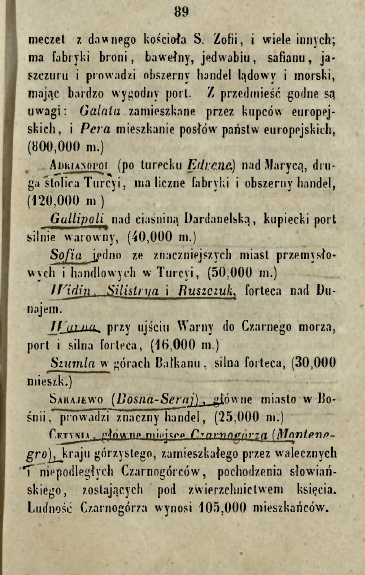 89
meczet z dawnego kościoła S. Zofii, i wiele innych;
ma fabryki broni, bawełny, jedwabiu, safianu, ja-
szczuru i prowadzi obszerny handel lądowy i morski,
mając bardzo wygodny port. Z przedmieść godne są
uwagi: Galata zamieszkane przez kupców europej-
skich, i Pera mieszkanie posłów państw europejskich,
(800,000 m.)
Adrianopol (po turecku Edrene) nad Marycą, dru-
ga stolica Turcyi, ma liczne fabryki i obszerny handel,
(120,000 m)
Gallipoli nad ciaśniną Dardanelską, kupiecki port
silnie warowny, (40,000 m.)
Sofia jedno ze znaczniejszych miast przemysło-
wych i handlowych w Turcyi, (50,000 m.)
Widin, Silistrya i Ruszczuk, forteca nad Du-
najem.
Warna, przy ujściu Warny do Czarnego morza,
port i silna forteca, (16,000 m.)
Szumla w górach Bałkanu, silna forteca, (30,000
mieszk.)
Sarajewo (Bosna-Seraj), główne miasto w Bo-
śnii, prowadzi znaczny handel, (25,000 m.)
Cetynia, główne miejsce Czarnogórza (Montene-
gro), kraju górzystego, zamieszkałego przez walecznych
i niepodległych Czarnogórców, pochodzenia słowiań-
skiego, zostających pod zwierzchnictwem księcia.
Ludność Czarnogórza wynosi 105,000 mieszkańców.